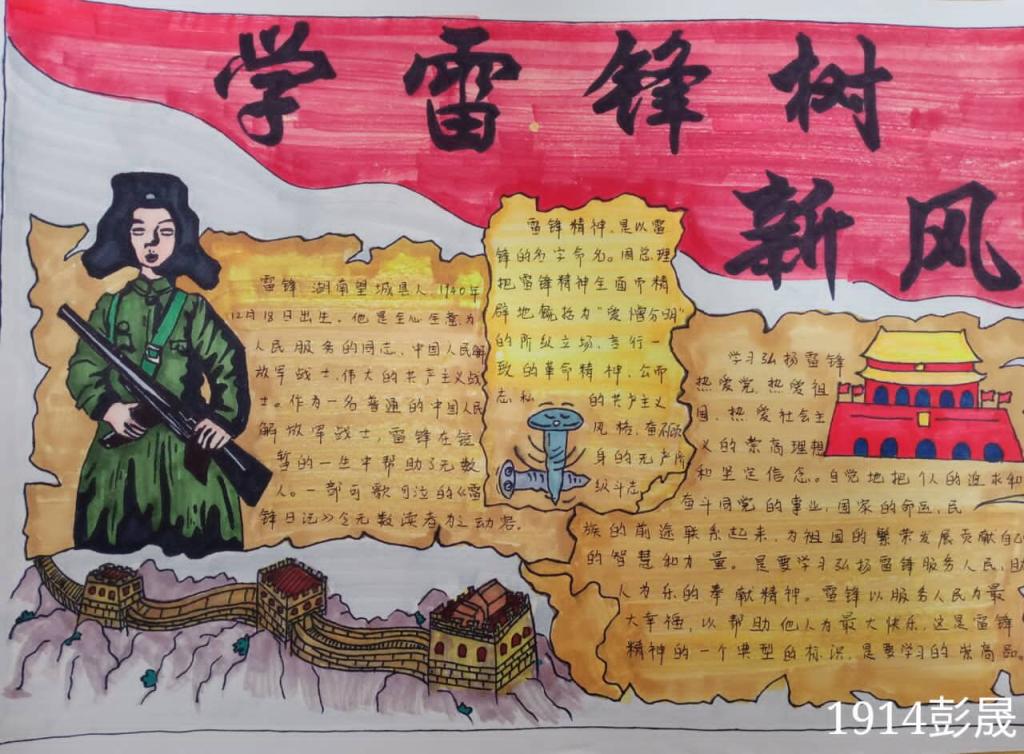 学雷锋树
新风
雷锋 湖南望城县人，1940年
12月18日出生。他是全心全意为
人民服务的同志，中国人民解
放军战士，伟大的共产主义战
士。作为一名普通的中国人民
解放军战士，雷锋在短
暂的一生中帮助了无数
人。一部可歌可泣的《雷
锋日记》令无数读者为之动容。
雷锋精神，是以雷
锋的名字命名。周总理
把雷锋精神全面而精
辟地概括为“爱憎分明”
的阶级立场，言行一
致的革命精神，公而
忘私 的共产主义
风格，奋不顾
身的无产阶
级斗志
学习弘扬雷锋
热爱党，热爱祖
国，热爱社会主
义的崇高理想
和坚定信念。自觉地把个人的追求和
奋斗同党的事业，国家的命运，民
族的前途联系起来，为祖国的繁荣发展贡献自己
的智慧和力量。是要学习弘扬雷锋服务人民，助
人为乐的奉献精神。雷锋以服务人民为最
大幸福，以帮助他人为最大快乐，这是雷锋
精神的一个典型的标识，是要学习的崇高品
1914彭晟